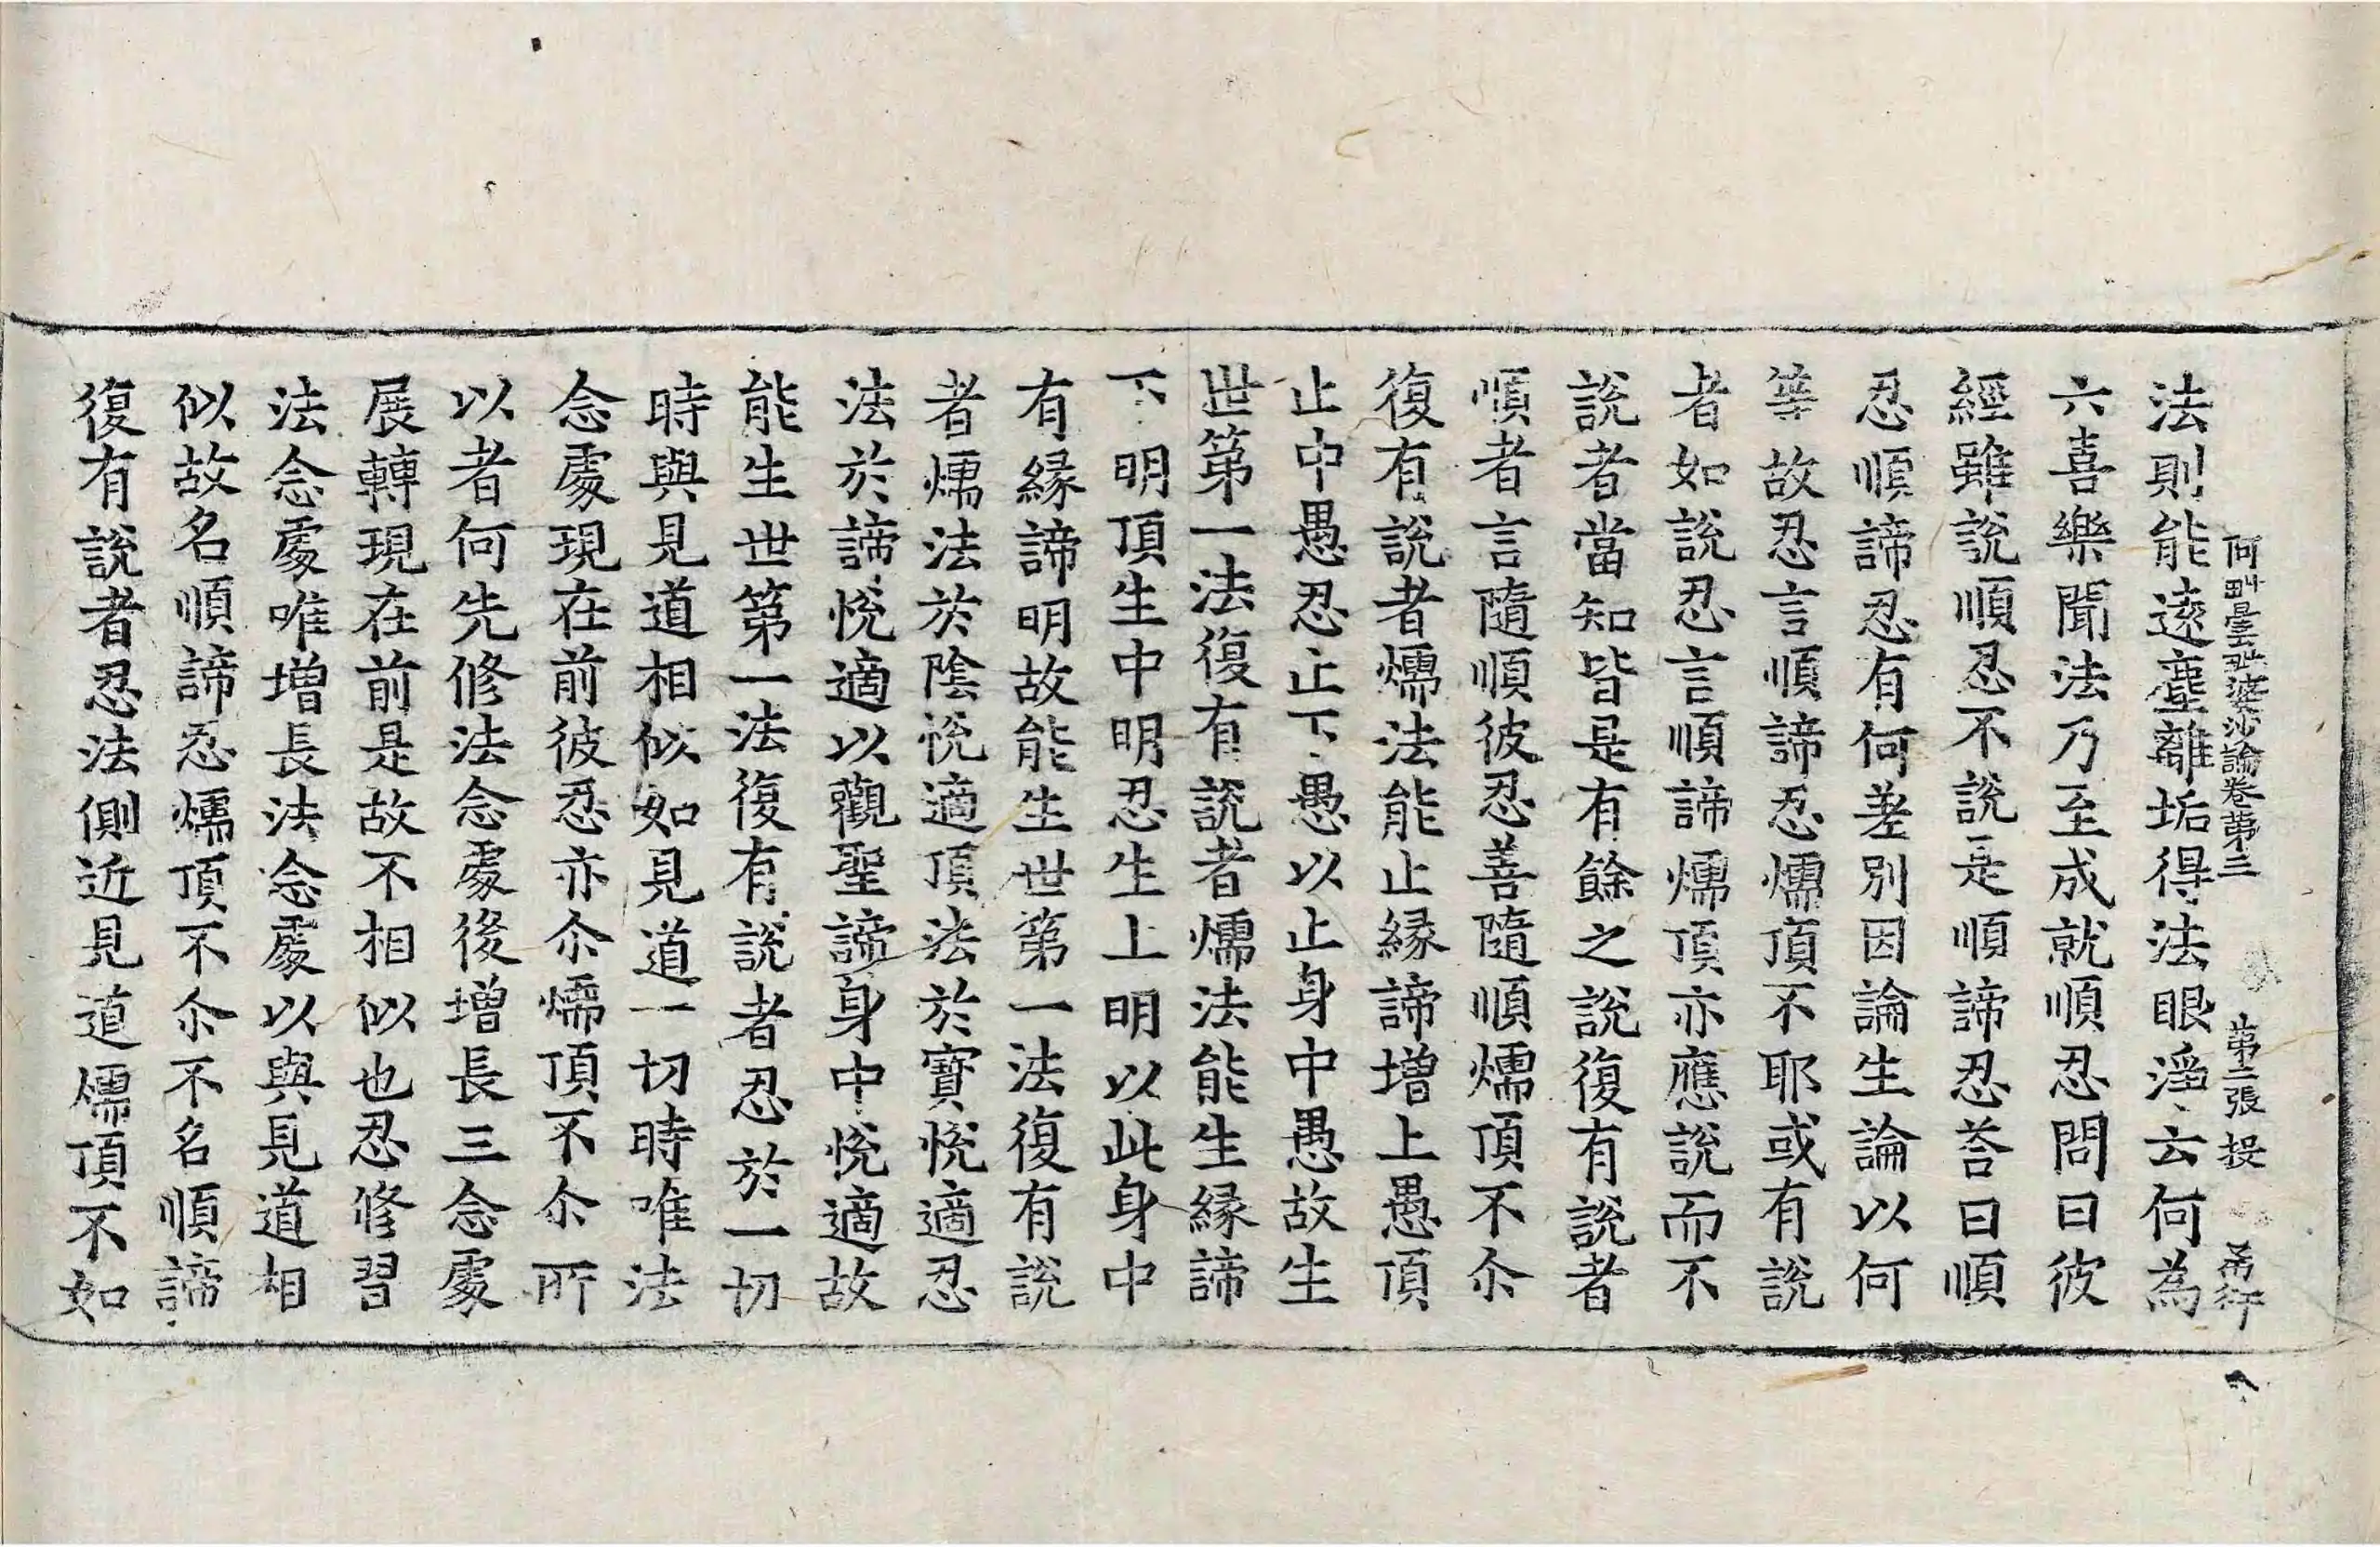 阿毗曇毗婆沙論卷第三 第二張 投
法則能遠塵離垢得法眼淨云何為
六喜樂聞法乃至成就順忍問曰彼
經雖說順忍不說是順諦忍荅曰順
忍順諦忍有何差別因論生論以何
等故忍言順諦忍煗頂不耶或有說
者如說忍言順諦煗頂亦應說而不
說者當知皆是有餘之說復有說者
順者言隨順彼忍善隨順煗頂不尒
復有說者煗法能止緣諦增上愚頂
止中愚忍止下愚以止身中愚故生
世第一法復有說者煗法能生緣諦
下明頂生中明忍生上明以此身中
有緣諦明故能生世第一法復有說
者煗法於陰悅適頂法於寶悅適忍
法於諦悅適以觀聖諦身中悅適故
能生世第一法復有說者忍於一切
時與見道相似如見道一切時唯法
念處現在前彼忍亦尒煗頂不尒所
以者何先修法念處後增長三念處
展轉現在前是故不相似也忍修習
法念處唯增長法念處以與見道相
似故名順諦忍煗頂不尒不名順諦
復有說者忍法側近見道煗頂不如